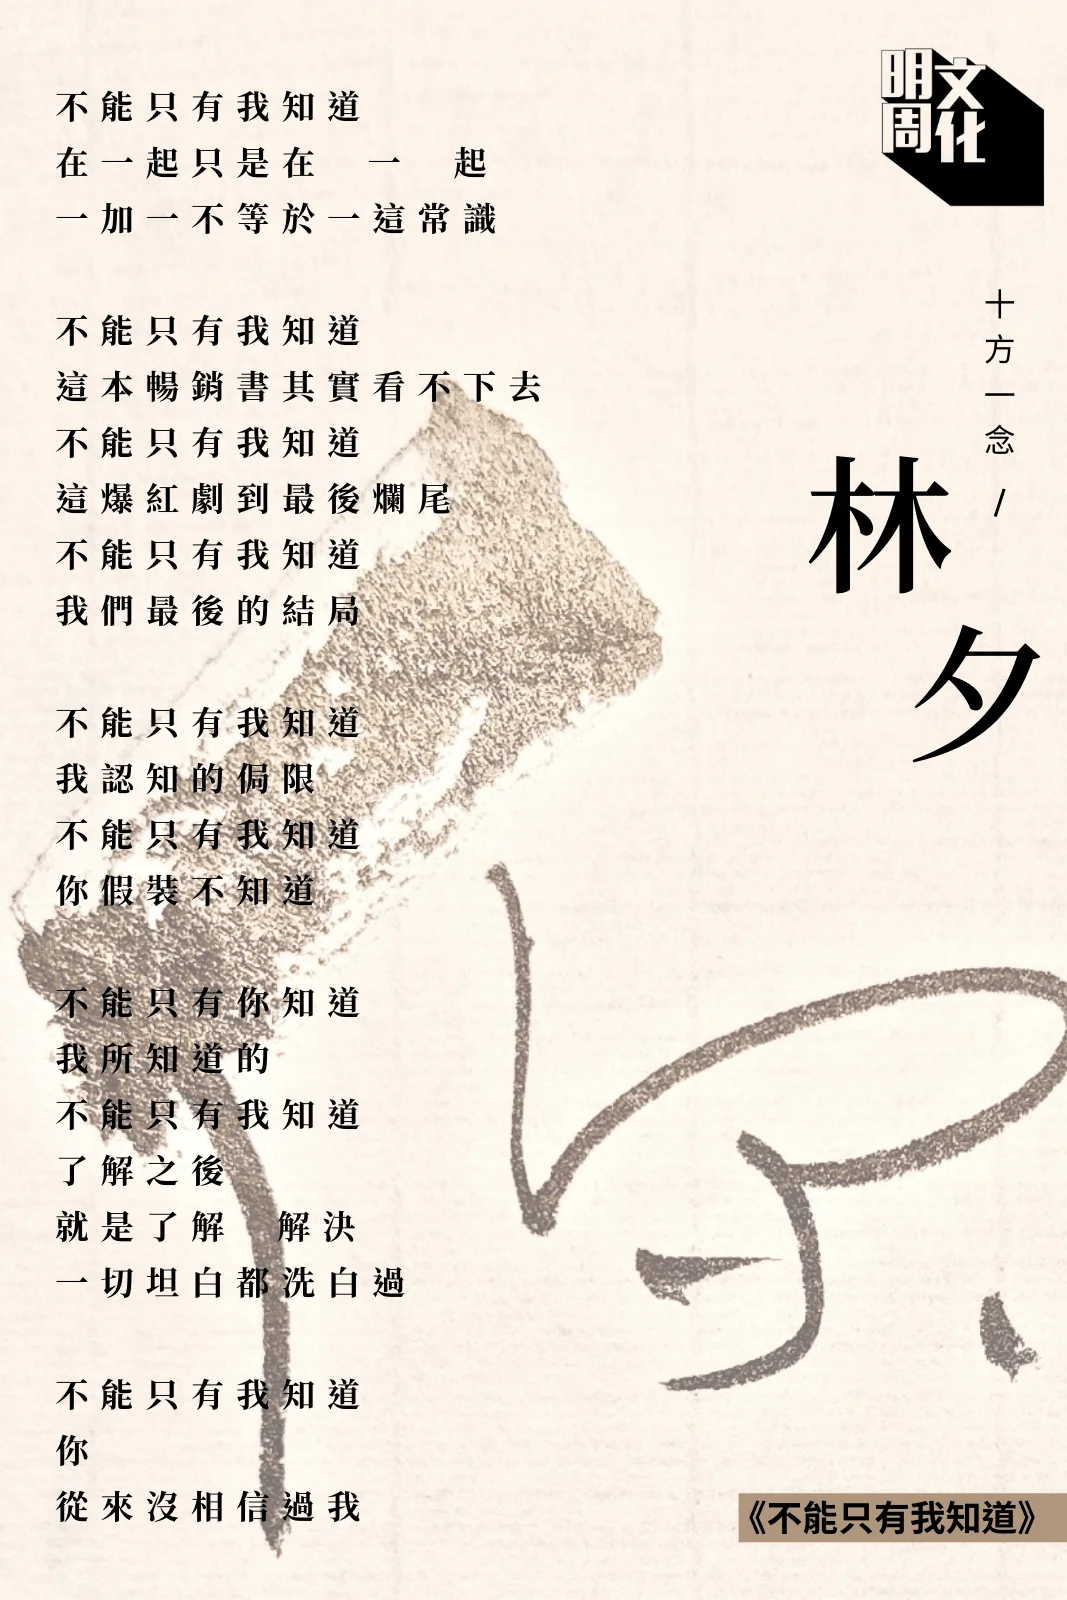 不能只有我知道
在一起只是在　一　起
一加一不等於一這常識

不能只有我知道
這本暢銷書其實看不下去
不能只有我知道
這爆紅劇到最後爛尾
不能只有我知道
我們最後的結局

不能只有我知道
我認知的侷限
不能只有我知道
你假裝不知道

不能只有你知道
我所知道的
不能只有我知道
了解之後
就是了解　解決
一切坦白都洗白過

不能只有我知道
你
從來沒相信過我

明周
文化
十方一念 /
林夕
《不能只有我知道》